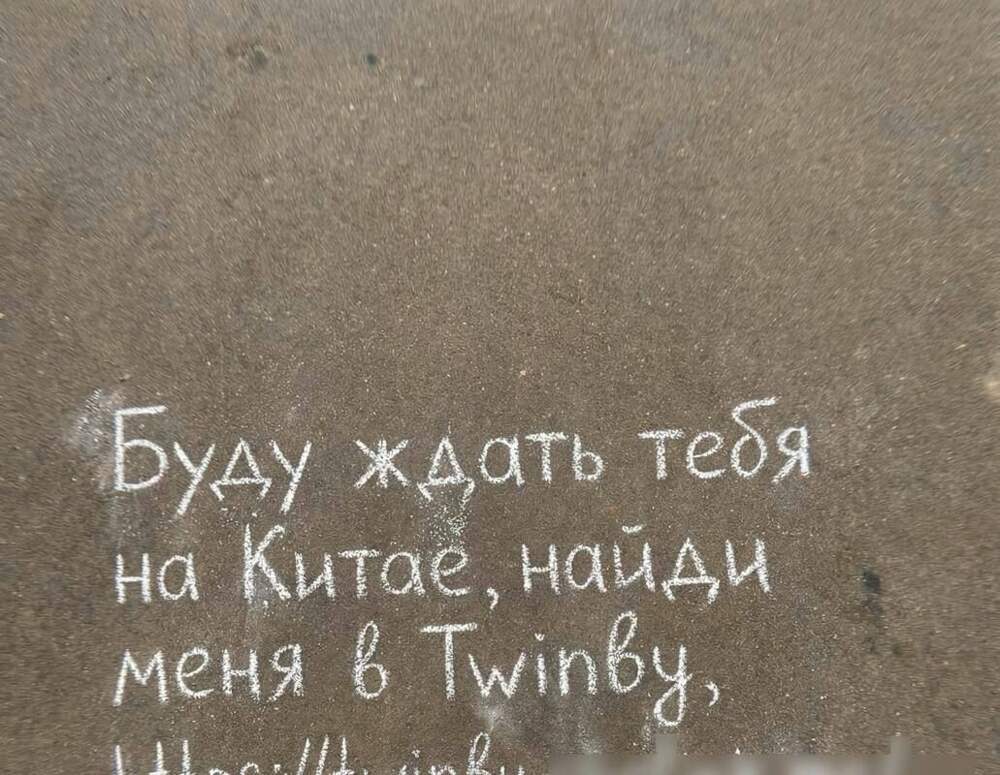 Буду ждать тебя
на Китае, найди
меня в Twinby,